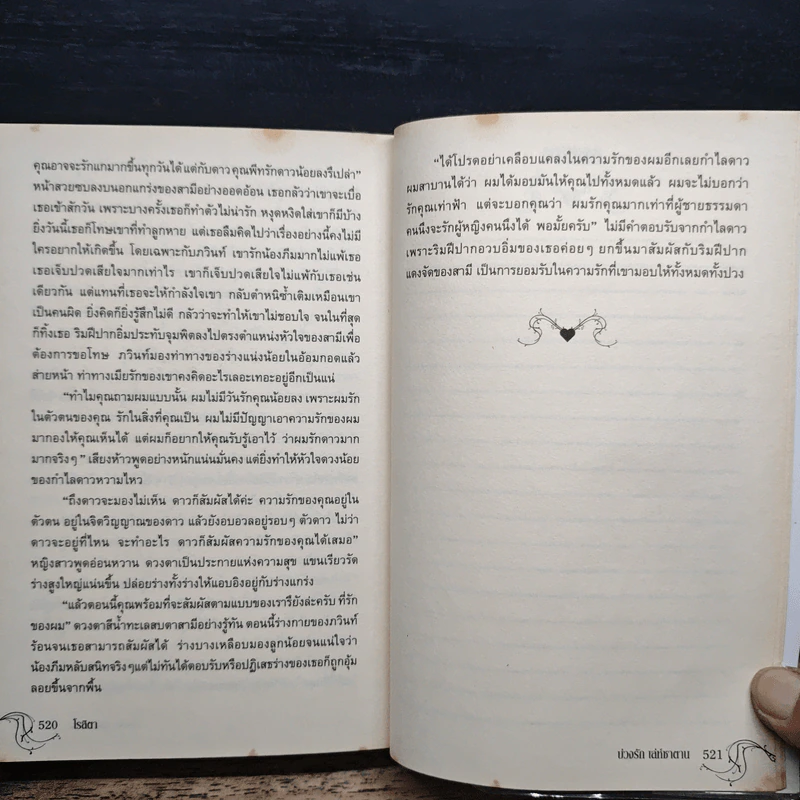 คุณอาจจะรักแกมากขึ้นทุกวันได้ แต่กับดาว คุณพีทรักดาวน้อยลงรึเปล่า”
หน้าสวยซบลงบนอกแกร่งของสามีอย่างออดอ้อน เธอกลัวว่าเขาจะเบื่อ
เธอเข้าสักวัน เพราะบางครั้งเธอก็ทำตัวไม่น่ารัก หงุดหงิดใส่เขาก็มีบ้าง
ยิ่งวันนี้เธอก็โทษเขาที่ทำลูกหาย แต่เธอลืมคิดไปว่าเรื่องอย่างนี้คงไม่มี
ใครอยากให้เกิดขึ้น โดยเฉพาะกับภวินท์ เขารักน้องภีมมากไม่แพ้เธอ
เธอเจ็บปวดเสียใจมากเท่าไร เขาก็เจ็บปวดเสียใจไม่แพ้กับเธอเช่น
เดียวกัน แต่แทนที่เธอจะให้กำลังใจเขา กลับตำหนิซ้ำเติมเหมือนเขา
เป็นคนผิด ยิ่งคิดก็ยิ่งรู้สึกไม่ดี กลัวว่าจะทำให้เขาไม่ชอบใจ จนในที่สุด
ก็ทิ้งเธอ ริมฝีปากอิ่มประทับจุมพิตลงไปตรงตำแหน่งหัวใจของสามีเพื่อ
ต้องการขอโทษ ภวินท์มองท่าทางของร่างแน่งน้อยในอ้อมกอดแล้ว
ส่ายหน้า ท่าทางเมียรักของเขาคงคิดอะไรเลอะเทอะอยู่อีกเป็นแน่
“ทำไมคุณถามผมแบบนั้น ผมไม่มีวันรักคุณน้อยลง เพราะผมรัก
ในตัวตนของคุณ รักในสิ่งที่คุณเป็น ผมไม่มีปัญญาเอาความรักของผม
มากองให้คุณเห็นได้ แต่ผมก็อยากให้คุณรับรู้เอาไว้ ว่าผมรักดาวมาก
มากจริงๆ” เสียงห้าวพูดอย่างหนักแน่นมั่นคง แต่ยิ่งทำให้หัวใจดวงน้อย
ของกำไลดาวหวามไหว
“ถึงดาวจะมองไม่เห็น ดาวก็สัมผัสได้ค่ะ ความรักของคุณอยู่ใน
ตัวตน อยู่ในจิตวิญญาณของดาว แล้วยังอบอวลอยู่รอบๆ ตัวดาว ไม่ว่า
ดาวจะอยู่ที่ไหน จะทำอะไร ดาวก็สัมผัสความรักของคุณได้เสมอ”
หญิงสาวพูดอ่อนหวาน ดวงตาเป็นประกายแห่งความสุข แขนเรียวรัด
ร่างสูงใหญ่แน่นขึ้น ปล่อยร่างทั้งร่างให้แอบอิงอยู่กับร่างแกร่ง
“แล้วตอนนี้คุณพร้อมที่จะสัมผัสตามแบบของเรารึยังล่ะครับ ที่รัก
ของผม” ดวงตาสีน้ำทะเลสบตาสามีอย่างรู้ทัน ตอนนี้ร่างกายของภวินท์
ร้อนจนเธอสามารถสัมผัสได้ ร่างบางเหลือบมองลูกน้อยจนแน่ใจว่า
น้องภีมหลับสนิทจริงๆ แต่ไม่ทันได้ตอบรับหรือปฏิเสธร่างของเธอก็ถูกอุ้ม
ลอยขึ้นจากพื้น
520 โรสิตา
“ได้โปรดอย่าเคลือบแคลงในความรักของผมอีกเลยกำไลดาว
ผมสาบานได้ว่า ผมได้มอบมันให้คุณไปทั้งหมดแล้ว ผมจะไม่บอกว่า
รักคุณเท่าฟ้า แต่จะบอกคุณว่า ผมรักคุณมากเท่าที่ผู้ชายธรรมดา
คนนึงจะรักผู้หญิงคนนึงได้ พอมั้ยครับ” ไม่มีคำตอบรับจากกำไลดาว
เพราะริมฝีปากอวบอิ่มของเธอค่อยๆ ยกขึ้นมาสัมผัสกับริมฝีปาก
แดงจัดของสามี เป็นการยอมรับในความรักที่เขามอบให้ทั้งหมดทั้งปวง
บ่วงรัก เล่ห์ซาตาน 521